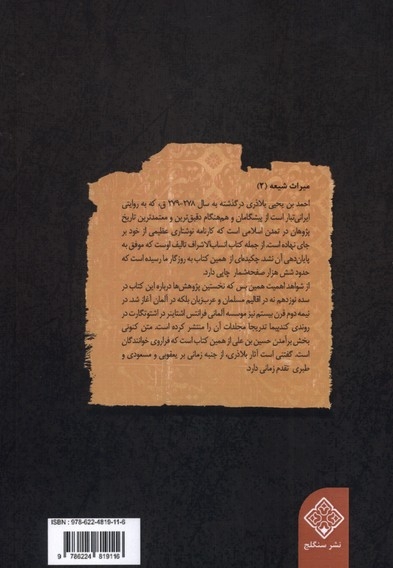 میراث شیعه (۲)
احمد بن یحیی بلاذری درگذشته به سال ۲۷۸-۲۷۹ ق، که به روایتی
ایرانی‌تبار است از پیشگامان و هم‌هنگام دقیق‌ترین و معتمدترین تاریخ
پژوهان در تمدن اسلامی است که کارنامه نوشتاری عظیمی از خود بر
جای نهاده است. از جمله کتاب انساب‌الاشراف تالیف اوست که موفق به
پایان‌دهی آن نشد. چکیده‌ای از همین کتاب به روزگار ما رسیده است که
حدود شش هزار صفحه‌شمار چاپی دارد.
از شواهد اهمیت همین بس که نخستین پژوهش‌ها درباره این کتاب در
سده نوزدهم نه در اقالیم مسلمان و عرب‌زبان بلکه در آلمان آغاز شد. در
نیمه دوم قرن بیستم نیز موسسه آلمانی فرانتس اشتاینر در اشتوتگارت در
روندی کندپیما تدریجا مجلدات آن را منتشر کرده است. متن کنونی
بخش برآمدن حسین بن علی از همین کتاب است که فراروی خوانندگان
است. گفتنی است آثار بلاذری، از جنبه زمانی بر یعقوبی و مسعودی و
طبری تقدم زمانی دارد.
نشر سنگلج
ISBN : 978-622-4819-11-6
9 786224 819116